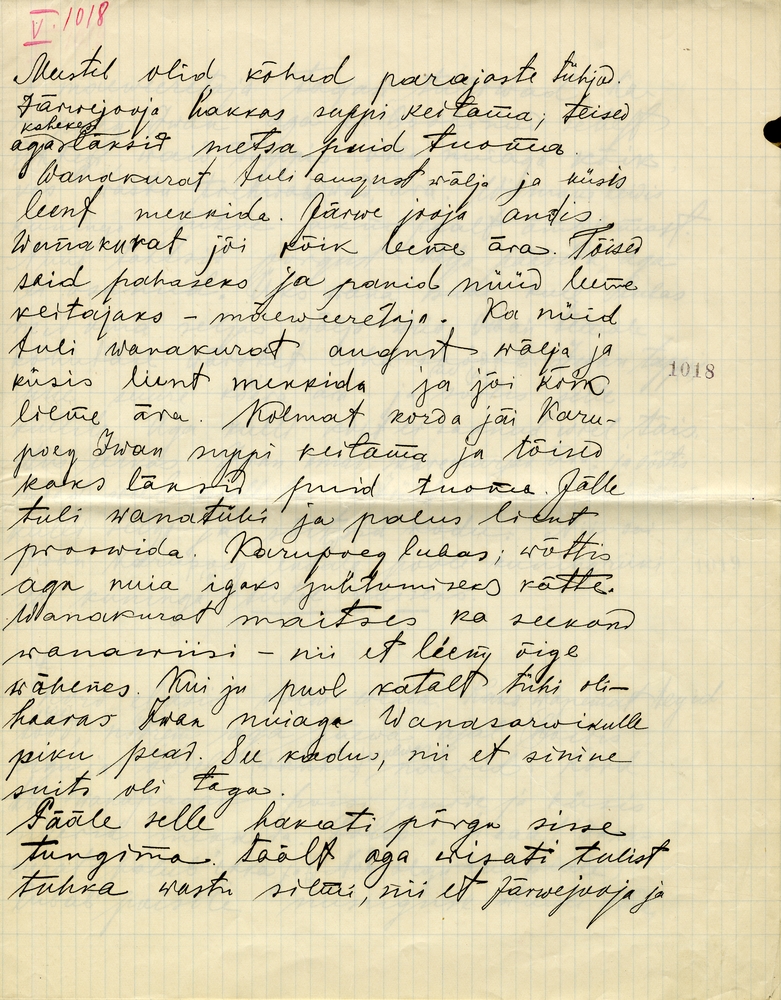 V. 1018
Meestel olid kõhud parajaste tühjad.
Järwejooja hakkas suppi keitama; teised
kahekesi
aga läksid metsa puid tuoma.
Wanakurat tuli august wälja ja küsis
leent mekkida. Järwe jooja andis.
Wanakurat jõi kõik leeme ära. Tõised
said pahaseks ja panid nüüd leeme
keitajaks – mäeweeretaja. Ka nüid
tuli wanakurat august wälja ja
küsis lient mekkida ja jõi kõik
lieme ära. Kolmat korda jäi Karu-
poeg Iwan suppi keitama ja tõised
kaks läksid puid tuoma. Jälle
tuli wanatühi ja palus lient
proowida. Karupoeg lubas; wõttis
aga nuia igaks juhtumiseks kätte.
Wanakurat maitses ka seekord
wanawiisi – nii et leemi õige
wähenes. Kui ju puol katalt tühi oli–
haaras Iwan nuiaga Wanasarwikulle
piku pead. See kadus, nii et sinine
suits oli taga.
Pääle selle hakati põrgu sisse
tungima. Säält aga wisati tulist
tuhka wastu silmi, nii et Järwejooja ja
1018